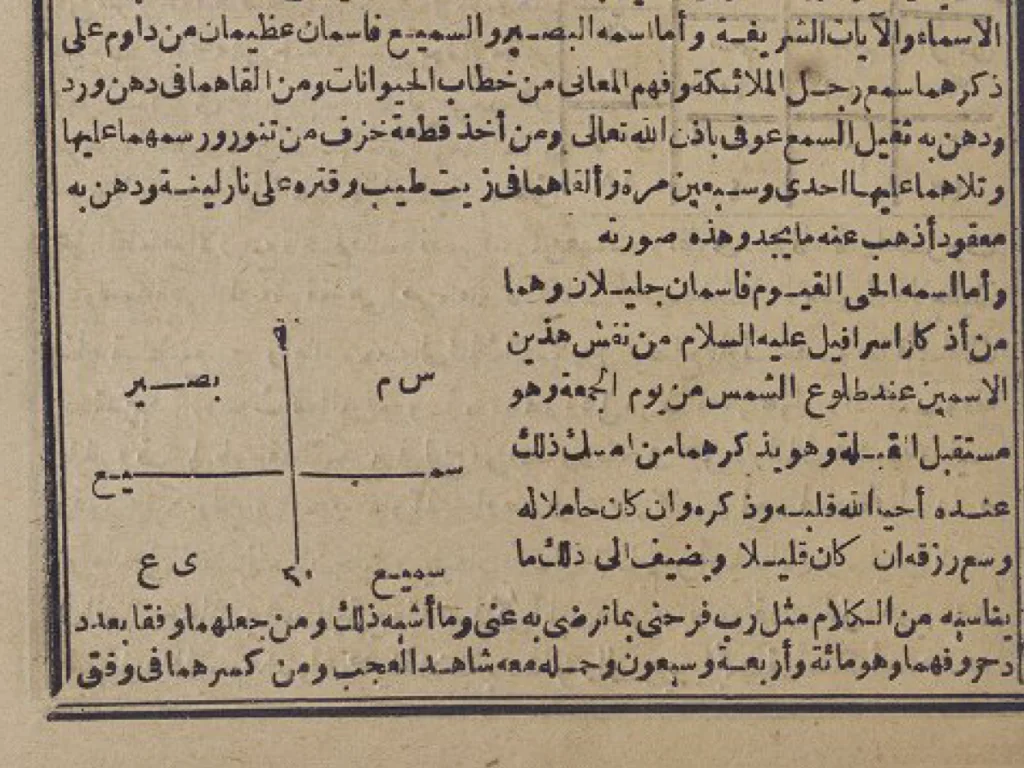 الاسماء والآيات الشريفة وأما اسمه البصير والسميع فاسمان عظيمان من داوم على
ذكرهما سمع رجل الملائكة وفهم المعانى من خطاب الحيوانات ومن القاهما فى دهن ورد
ودهن به ثقيل السمع عوفى باذن الله تعالى ومن أخذ قطعة خزف من تنور ورسمهما عليها
وتلاهما عليها احدى وسبعين مرة وألقاهما فى زيت طيب وقتره على نار لينة ودهن به
معقود أذهب عنه ما يجد وهذه صورته
وأما اسمه الحى القيوم فاسمان جليلان وهما
من أذكار اسرافيل عليه السلام من نقش هذين
الاسمين عند طلوع الشمس من يوم الجمعة وهو
مستقبل القبلة وهو يذكرهما من امسك ذلك
عنده أحيا الله قلبه وذكره وان كان حاملا له
وسع رزقه ان كان قليلا ويضيف الى ذلك ما
س م
بصير
سمـ
ـيع
سميع
ى ع
يناسبه من الكلام مثل رب فرحنى بما ترضى به عنى وما أشبه ذلك ومن جعلهما وفقا بعدد
حروفهما وهو مائة وأربعة وسبعون وحمله معه شاهد العجب ومن كسرهما فى وفق